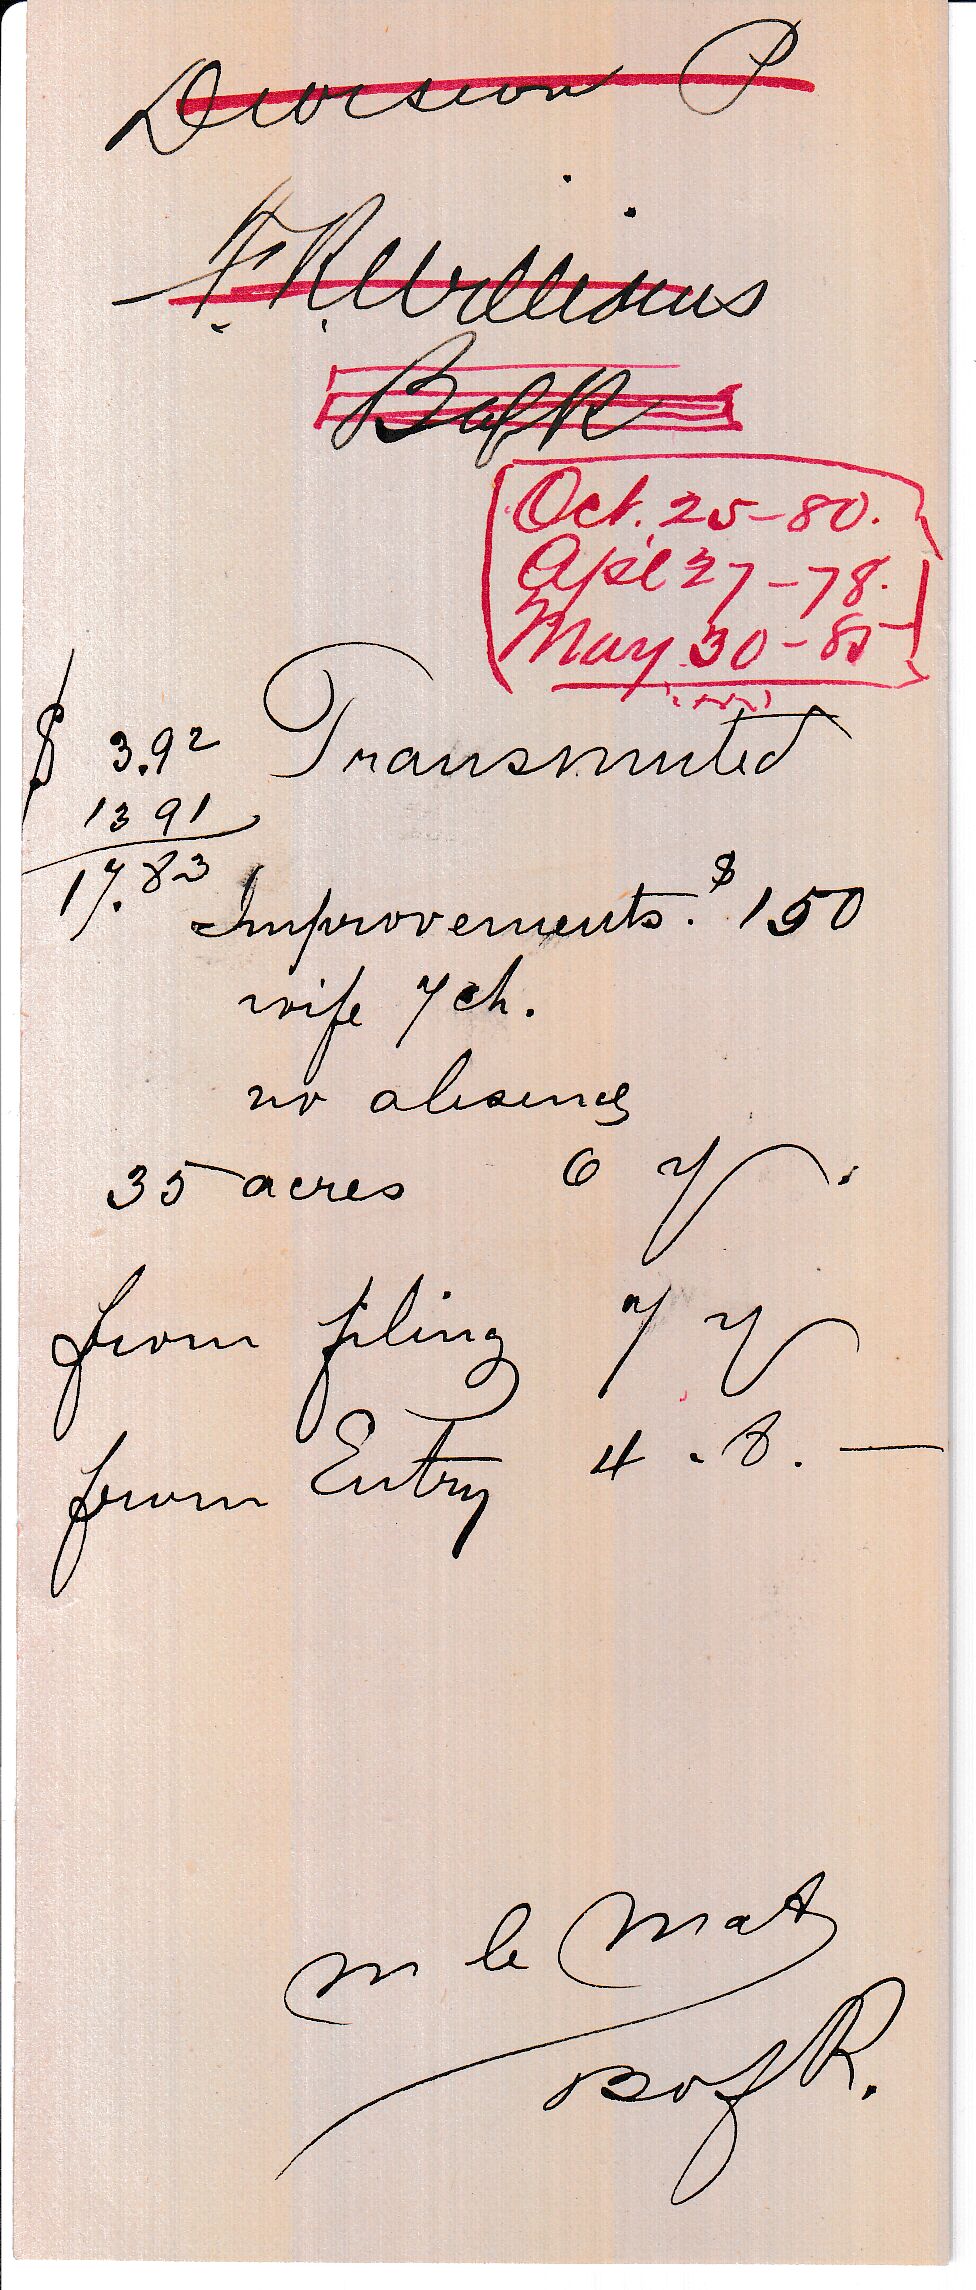 Division P
F. R. Williams
B of R
Oct. 25-80.
Apl 27-78.
May 30-85
$ 3.92 Transmuted
13 91
17.83
Improvements. $150
wife 7 ch.
no absence
35 acres 6 y.
from filing 7 y
from Entry 4.8.—
M le Mat
B of R.